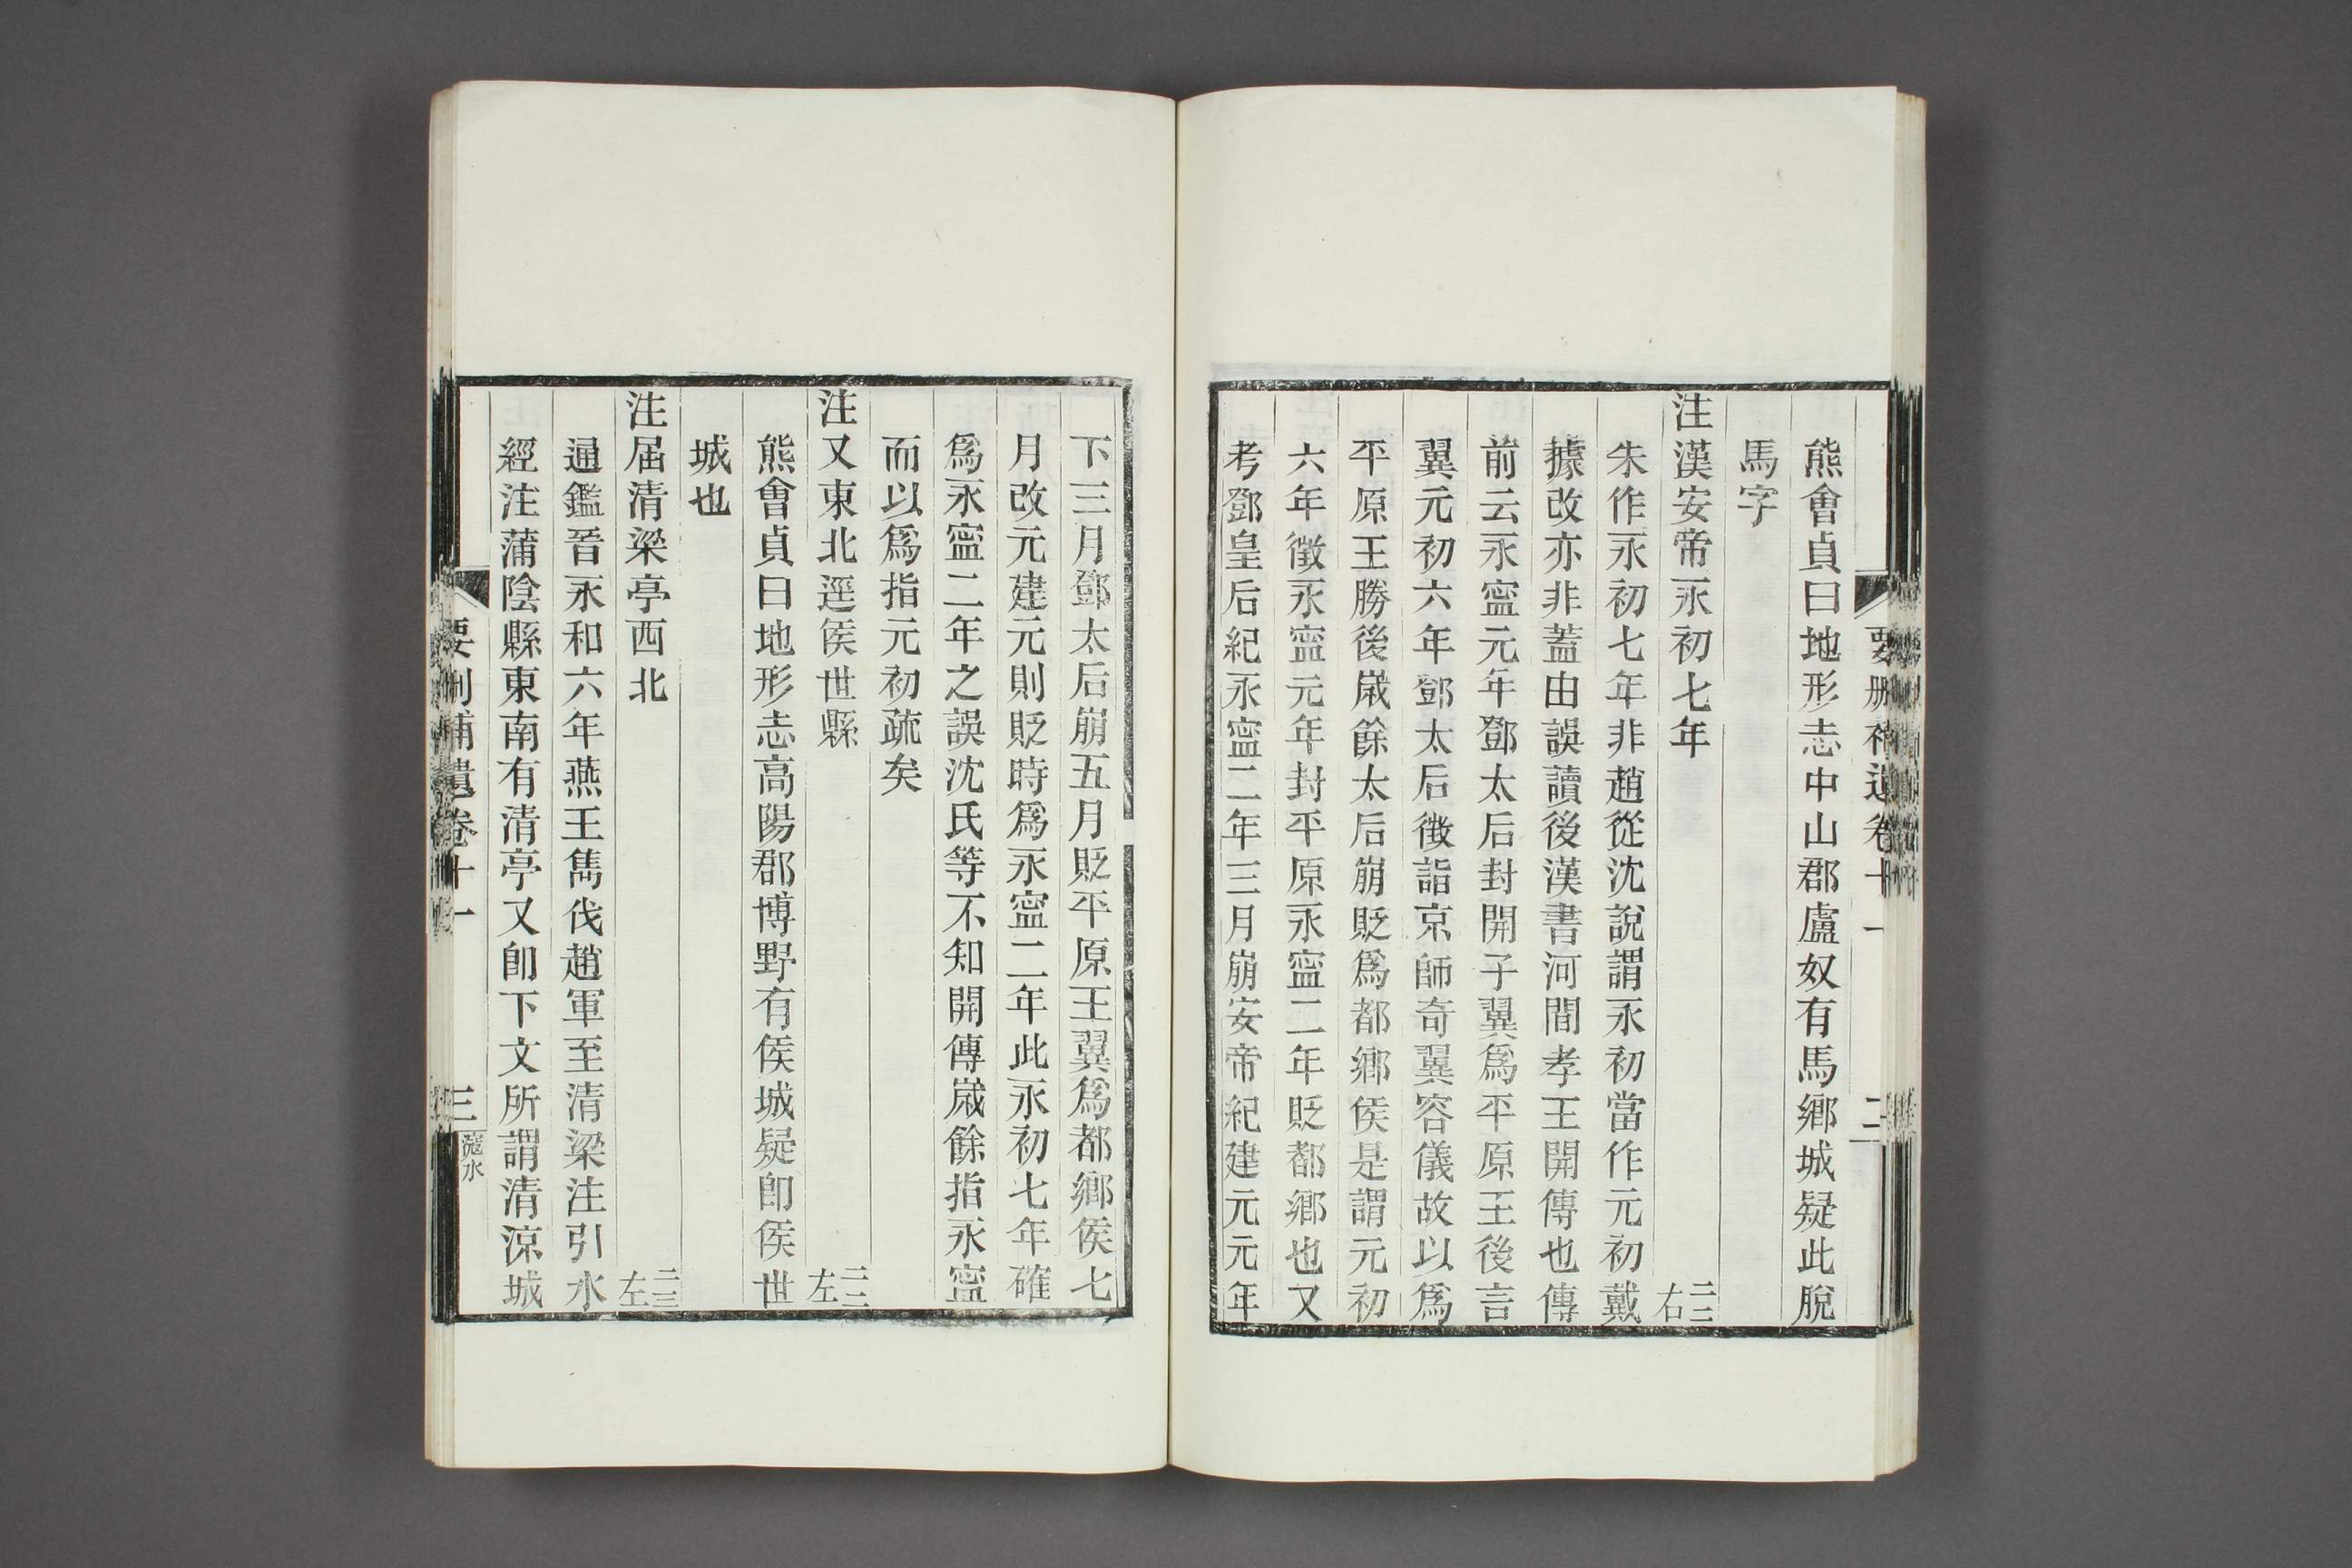 熊會貞曰地形志中山郡盧奴有馬鄉城疑此脫
馬字
注漢安帝永初七年 二三右
朱作永初七年非趙從沈說謂永初當作元初戴
據改亦非蓋由誤讀後漢書河間孝王開傳也傳
前云永寍元年鄧太后封開子翼爲平原王後言
翼元初六年鄧太后徵詣京師奇翼容儀故以爲
平原王勝後歲餘太后崩貶爲都鄉侯是謂元初
六年徵永寍元年封平原永寍二年貶都鄉也又
考鄧皇后紀永寍二年三月崩安帝紀建元元年
下三月鄧太后崩五月貶平原王翼爲都鄉侯七
月改元建元則貶時爲永寍二年此永初七年確
爲永寍二年之誤沈氏等不知開傳歲餘指永寍
而以爲指元初疏矣
注又東北逕侯世縣 二三左
熊會貞曰地形志高陽郡博野有侯城疑卽侯世
城也
注屆清梁亭西北 二三左
通鑑晉永和六年燕王雋伐趙軍至清梁注引水
經注蒲陰縣東南有清亭又卽下文所謂清涼城
要刪補遺卷十一 三 滱水
要刪補遺卷十一 二